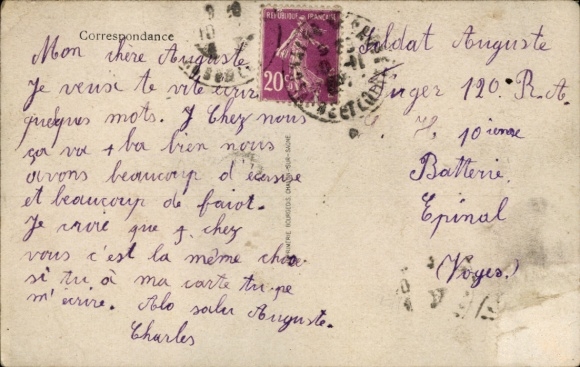 Correspondance
RÉPUBLIQUE FRANÇAISE
20c
Mon chère Auguste
Je veux te vite écrir
quelques mots. J Chez nous
ça va + ba bien nous
avons beaucoup d'
et beaucoup de faiot.
Je croie que + chez
vous c'est la même chose
si tu à ma carte tu pe
m'écrire. Alo salu Auguste.
Charles
IMPRIMERIE BOURGEOIS, CHALON-SUR-SAONE
Soldat Auguste
120. R.A.
10 ième
Batterie.
Epinal
(Voges.)